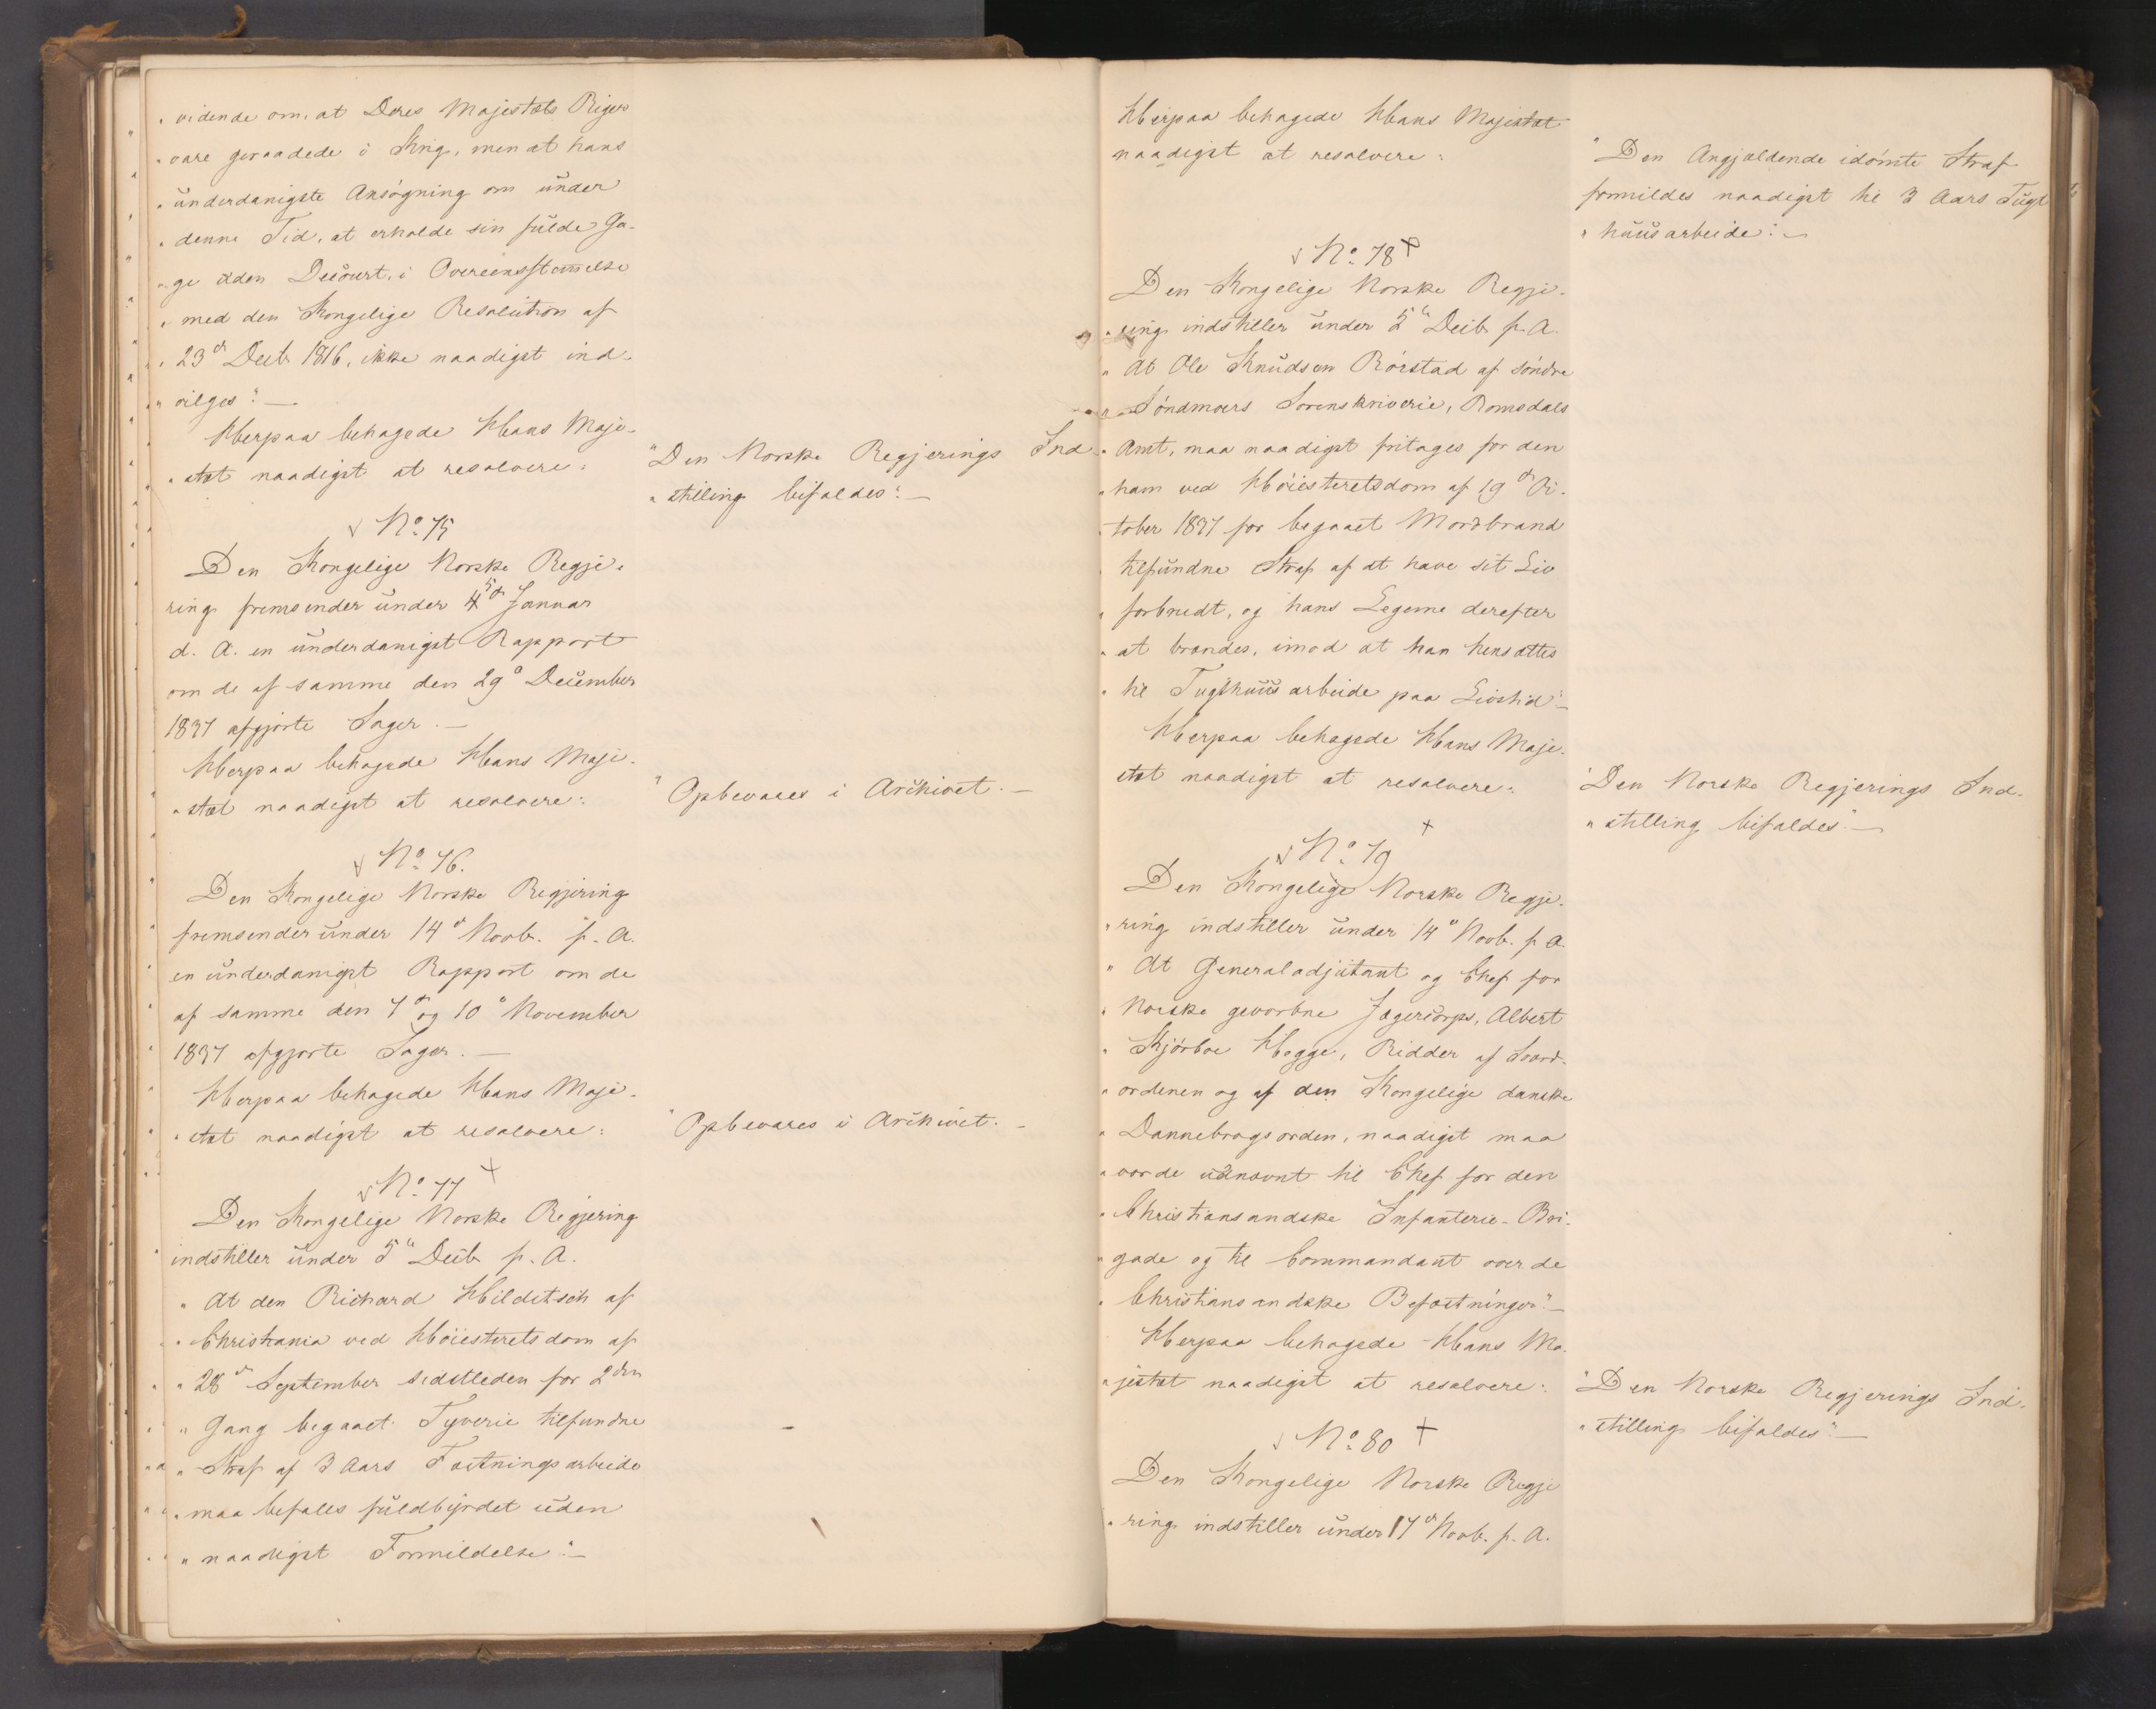 „vidende om, at Deres Majestæts Riger
„vare geraadede i Krig, men at hans
„underdanigste Ansögning om under
„denne Tid, at erholde sin fulde Ga-
„ge uden Decourt, i Overeensstemmelse
„med den Kongelige Resolution af
„23de Decbr 1816, ikke naadigst ind-
„vilges". —
Herpaa behagede Hans Maje-
„stæt naadigst at resolvere:
"Den Norske Regjerings Ind-
„stilling bifaldes". —
No. 75
Den Kongelige Norske Regje-
ring fremsender under 5te Januar
d. A. en underdanigst Rapport
om de af samme den 29de December
1837 afgjorte Sager. —
Herpaa behagede Hans Maje-
„stæt naadigst at resolvere:
"Opbevares i Archivet. —
No. 76.
Den Kongelige Norske Regjering
fremsender under 14de Novb. f. A.
en underdanigst Rapport om de
af samme den 7de og 10de November
1837 afgjorte Sager. —
Herpaa behagede Hans Maje-
„stæt naadigst at resolvere:
"Opbevares i Archivet. —
No. 77 +
Den Kongelige Norske Regjering
indstiller under 5te Decb f. A.
„At den Richard Hilditsch af
„Christiania ved Höiesteretsdom af
„28de September sidstleden for 2den
„Gang begaaet Tyverie tilfundne
„Straf af 3 Aars Fæstningsarbeide
„maa befales fuldbyrdet uden
„naadigst Formildelse". —
Herpaa behagede Hans Majestæt
naadigst at resolvere:
"Den Angjældende idömte Straf
formildes naadigst til 3 Aars Tugt
„huusarbeide". —
No. 78 +
Den Kongelige Norske Regje-
„ring indstiller under 5te Decb f. A.
„At Ole Knudsen Rörstad af söndre
„Söndmoers Sorenskriverie, Romsdals
„Amt, maa naadigst fritages for den
„ham ved Höiesteretsdom af 19de Oc-
„tober 1837 for begaaet Mordbrand
„tilfundne Straf af at have sit Liv
„forbrudt, og hans Legeme derefter
„at brændes, imod at han hensættes
„til Tugthuusarbeide paa Livstid". —
Herpaa behagede Hans Maje-
stæt naadigst at resolvere:
"Den Norske Regjerings Ind-
„stilling bifaldes". —
No. 79 +
Den Kongelige Norske Regje-
„ring indstiller under 14de Novb. f. A.
„At Generaladjutant og Chef for
„Norske gevorbne Jægercorps, Albert
„Kjörboe Hegge, Ridder af Sværd-
„ordenen og af den Kongelige danske
„Dannebrogsorden, naadigst maa
„vorde udnævnt til Chef for den
„Christiansandske Infanterie-Bri-
„gade og til Commandant over de
„Christiansandske Befæstninger". —
Herpaa behagede Hans Ma-
„jestæt naadigst at resolvere:
"Den Norske Regjerings Ind-
„stilling bifaldes". —
No. 80 +
Den Kongelige Norske Regje
„ring indstiller under 17de Novb. f. A.